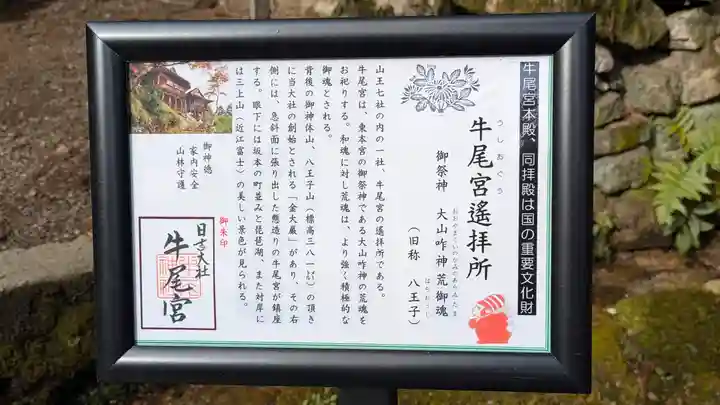 牛尾宮本殿、同拝殿は国の重要文化財
うしおぐう
牛尾宮遙拝所
おおやまくいのかみのあらみたま
御祭神 大山咋神荒御魂
はちおうじ
(旧称 八王子)
山王七社の内の一社、牛尾宮の遙拝所である。
牛尾宮は、東本宮の御祭神である大山咋神の荒魂を
お祀りする。和魂に対し荒魂は、より強く積極的な
御魂とされる。
背後の御神体山、八王子山(標高三八一㍍)の頂き
に当大社の創始とされる「金大巌」があり、その右
側には、急斜面に張り出した懸造りの牛尾宮が鎮座
する。眼下には坂本の町並みと琵琶湖、また対岸に
は三上山(近江富士)の美しい景色が見られる。
御神徳
家内安全
山林守護
御朱印
日吉大社
牛尾宮